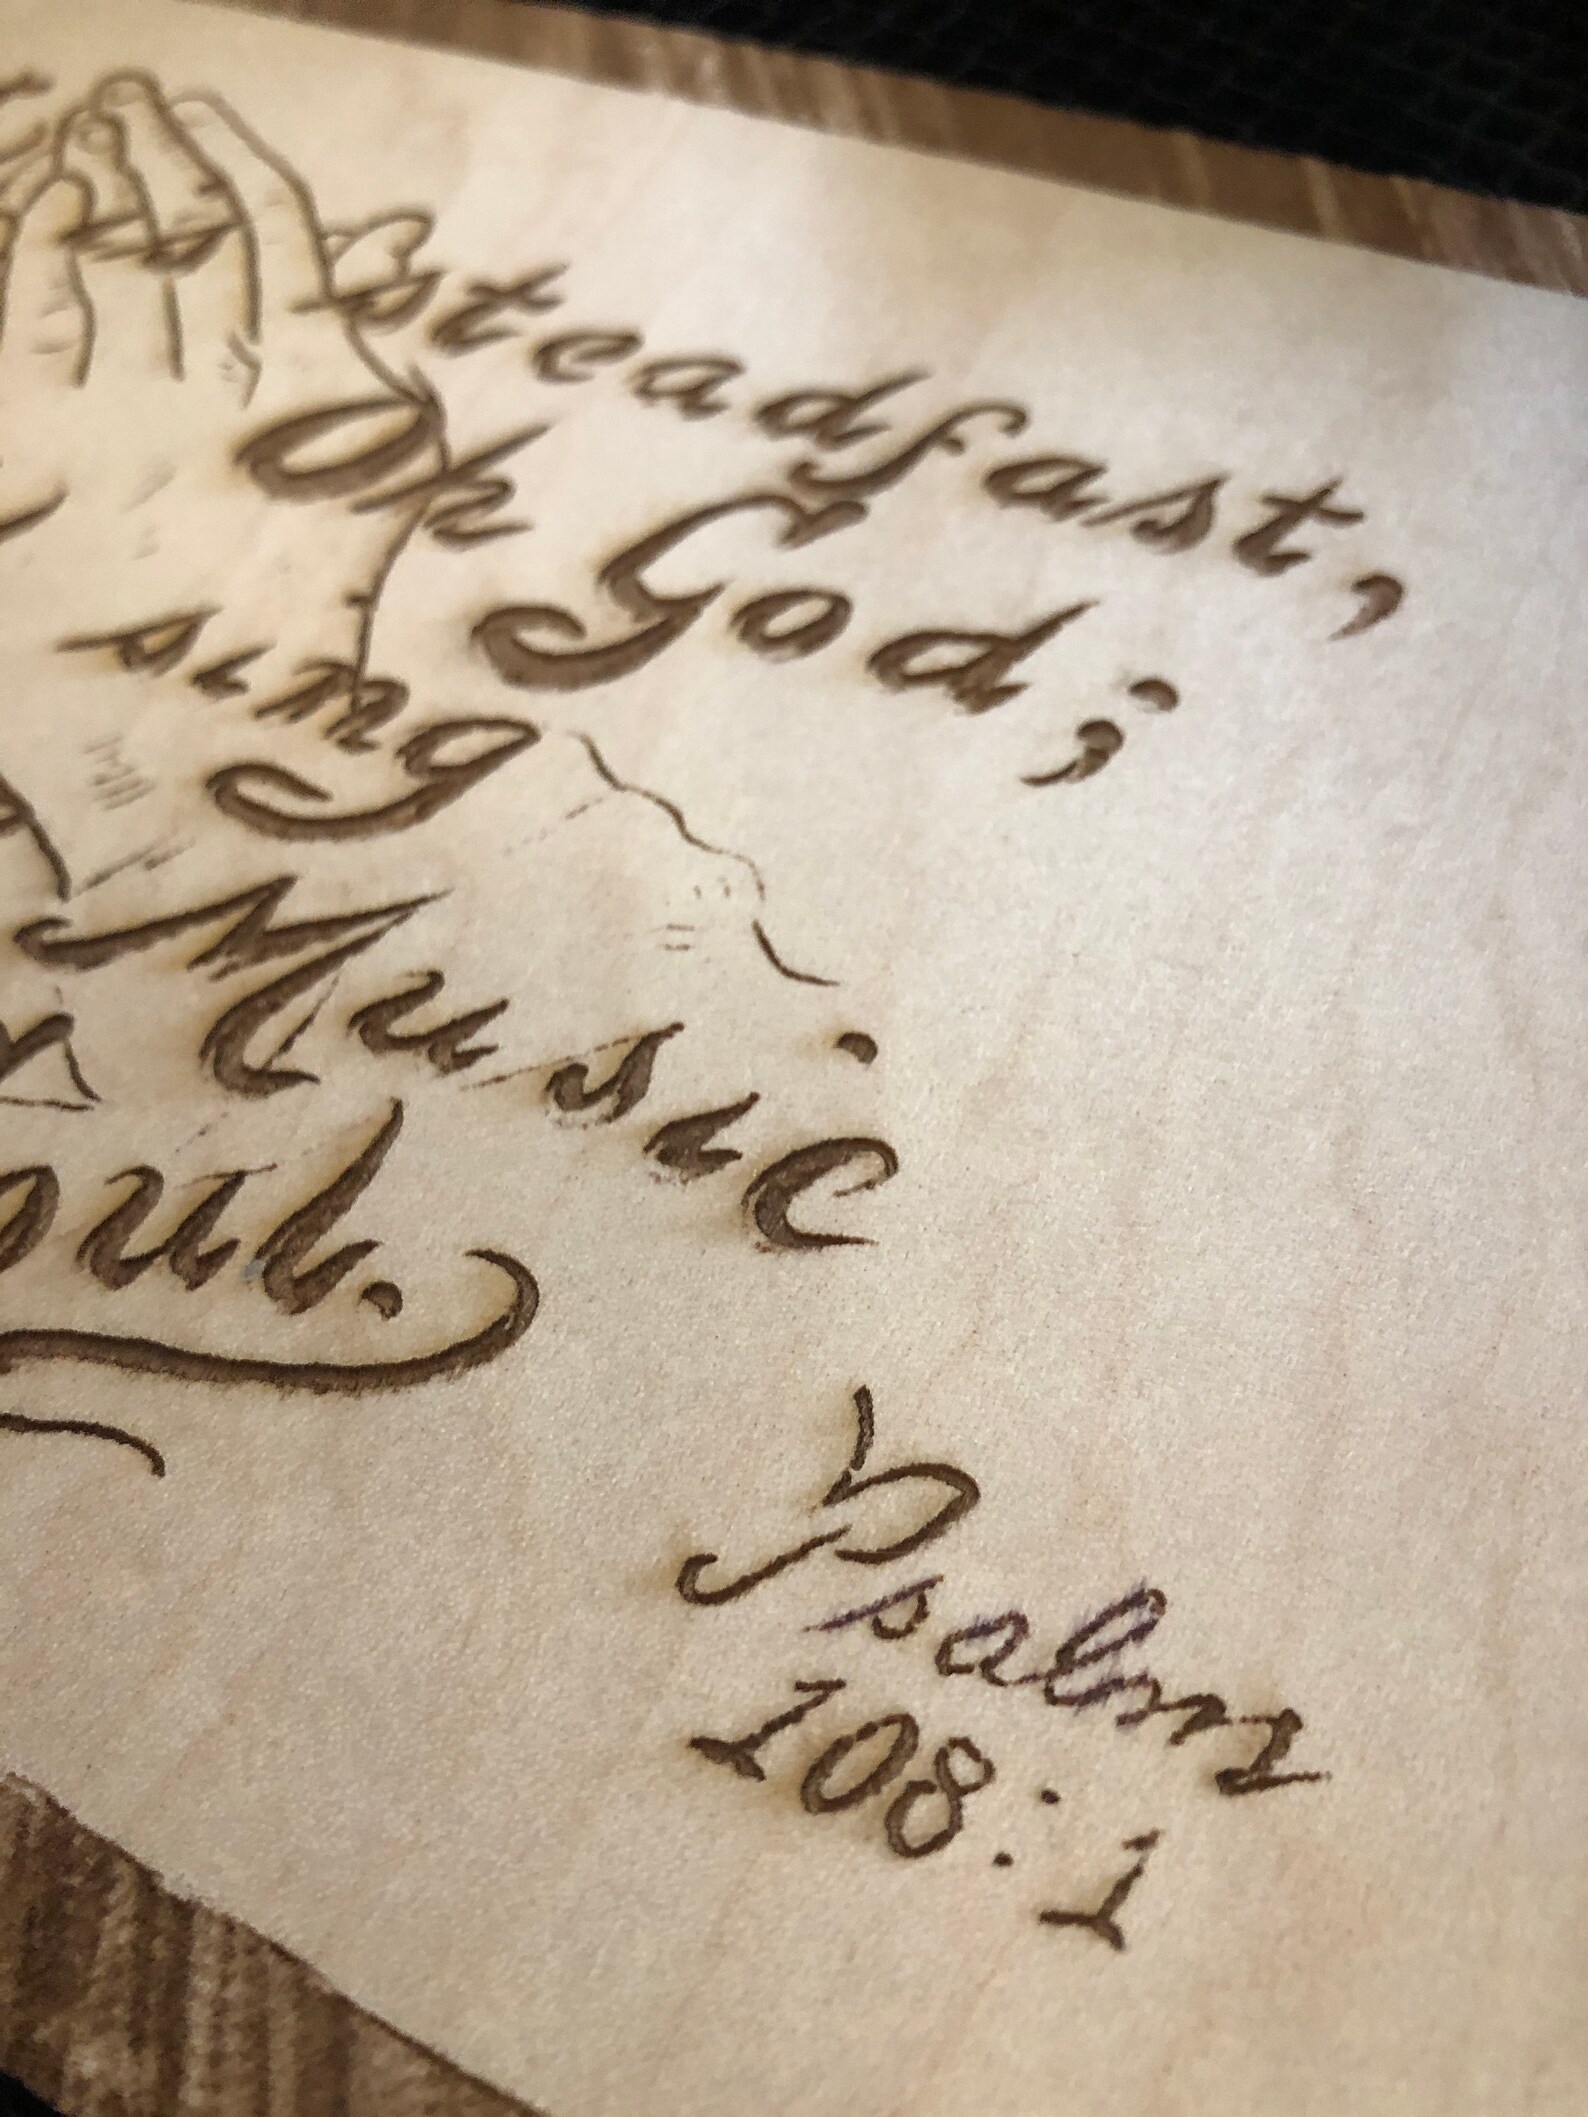 steadfast,
Oh God;
sing
Music
oul.
Psalms
108:1